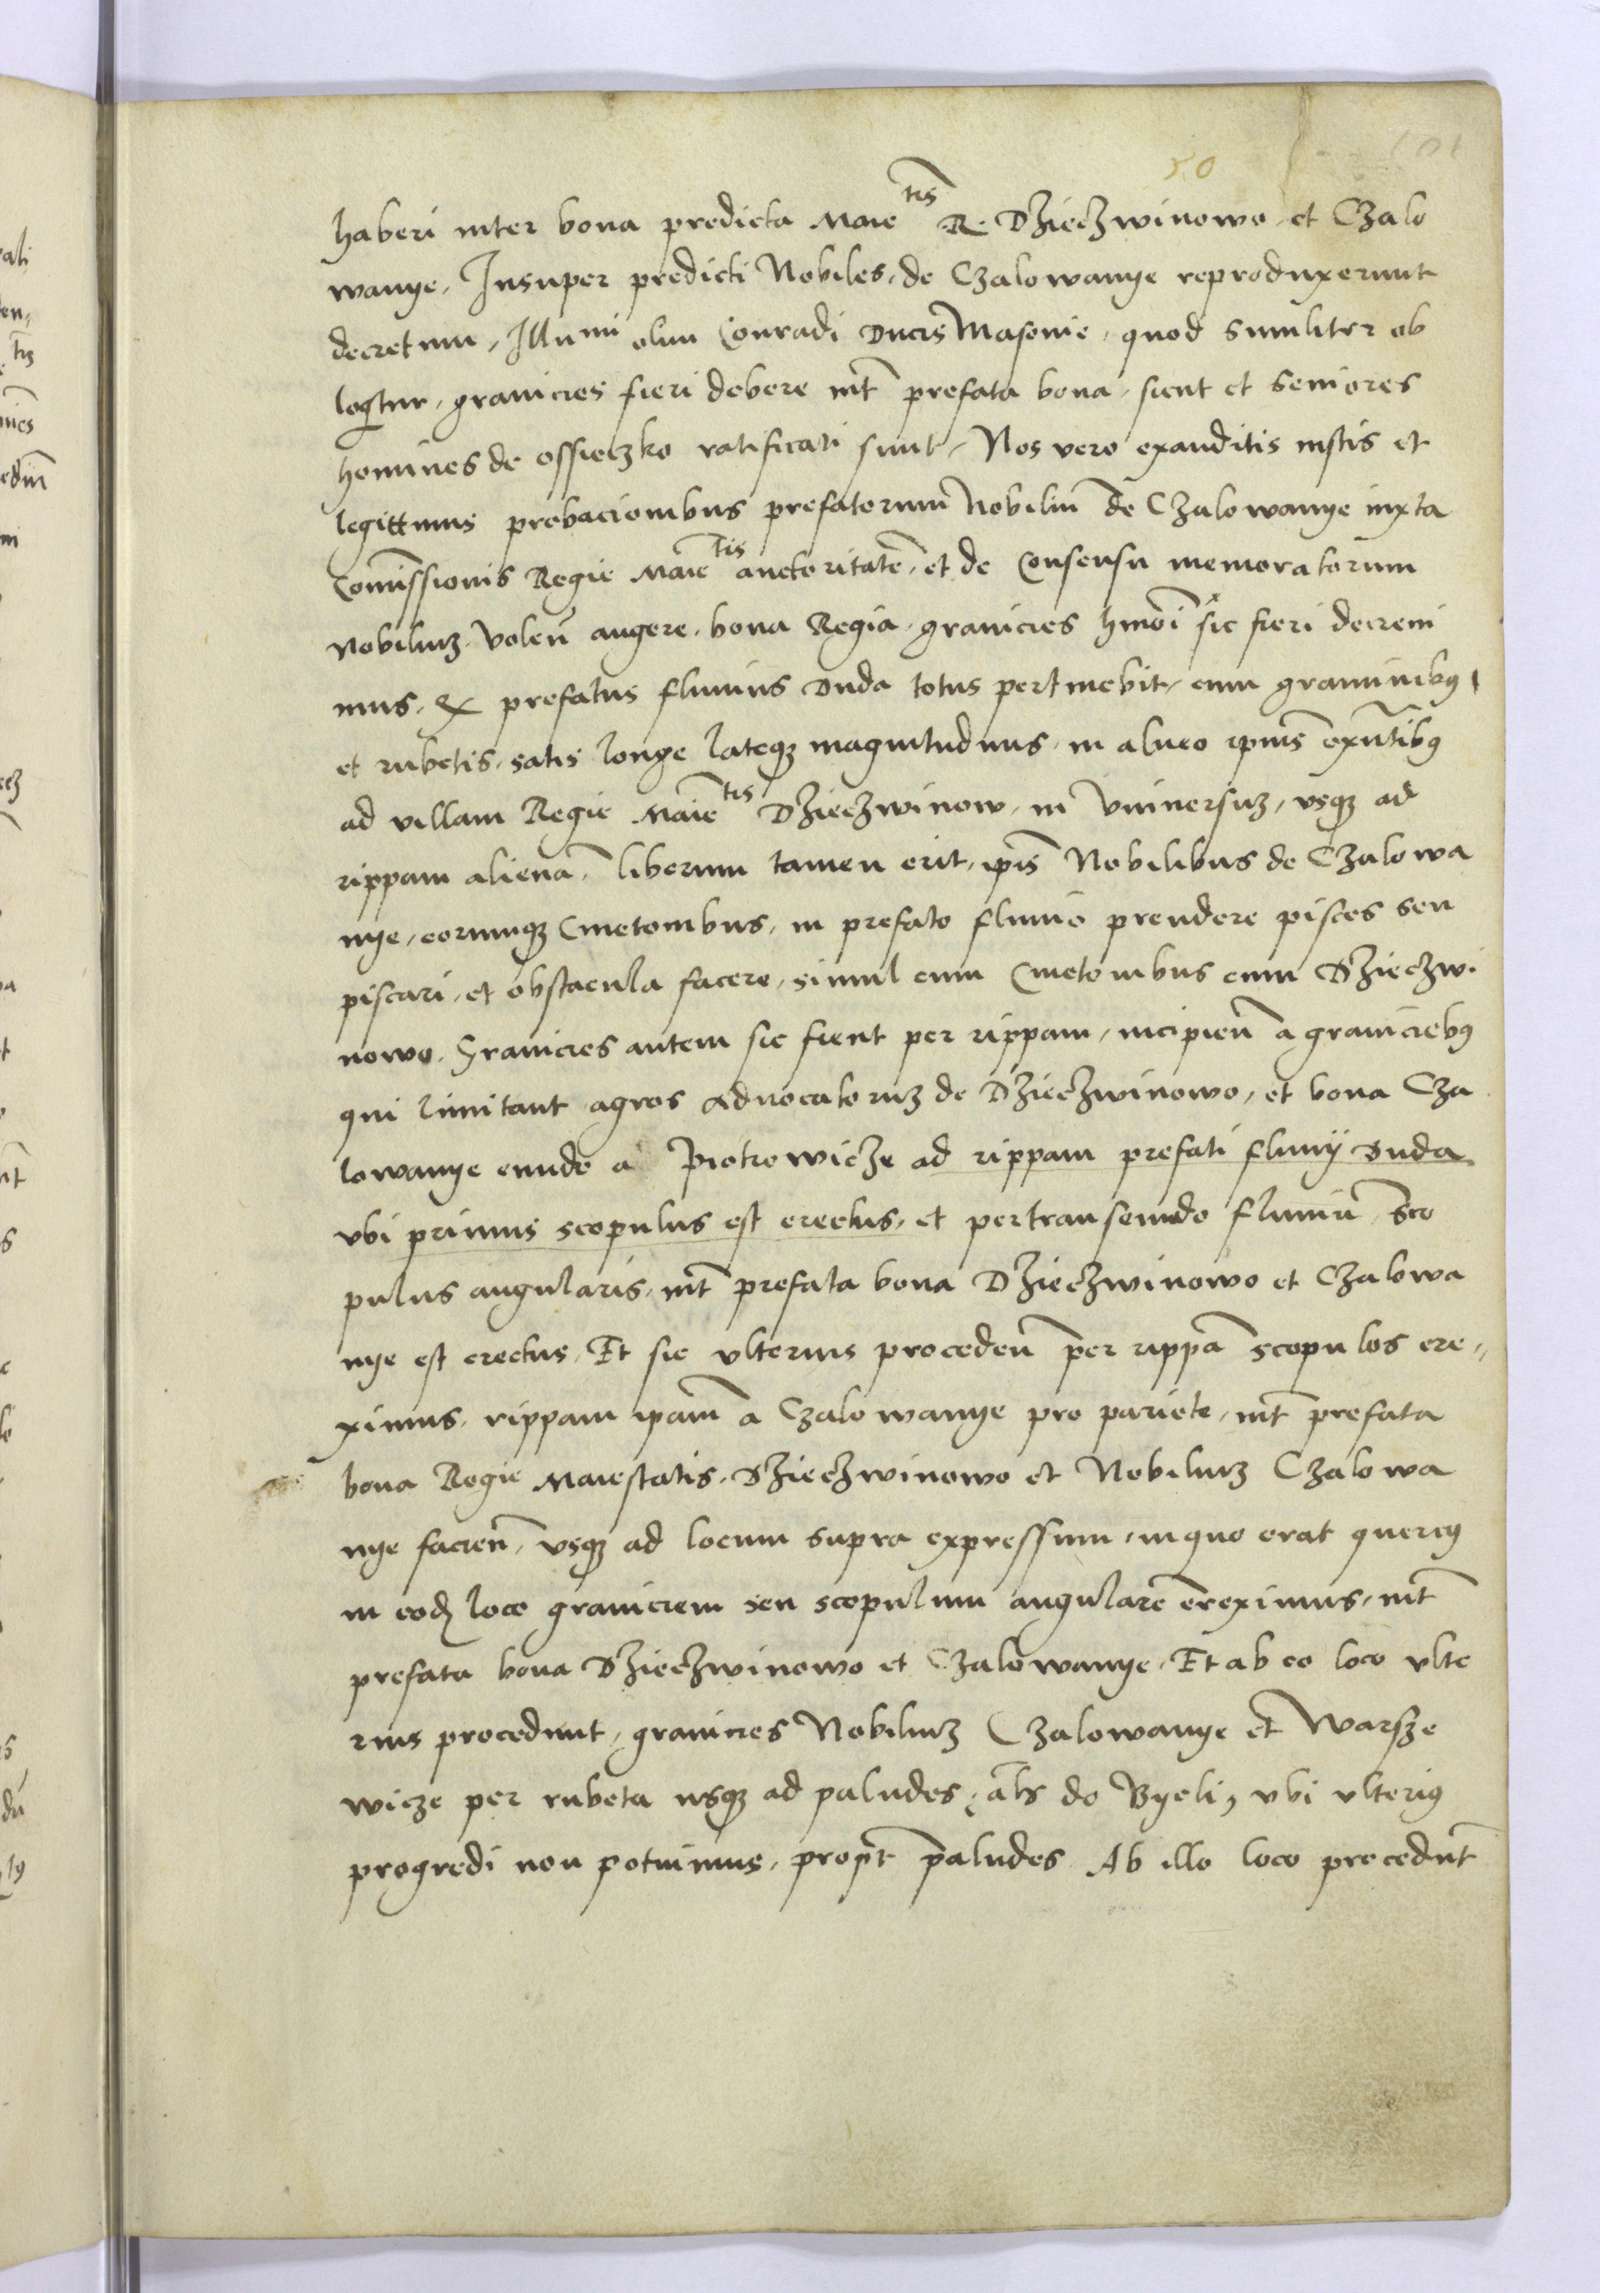 50
101
haberi inter bona predicta Maie tis R. Dzieczwinowo et Czalo
wanye. Insuper predicti Nobiles de Czalowanye reproduxerunt
decretum, Illumi olim Conradi Ducis Masovie, quod similiter ob
loqtur, granicies fieri debere int prefata bona, sicut et seniores
homines de ossieczko ratificati sunt. Nos vero exauditis iustis et
legittimis probacionibus prefatorum Nobiliu de Czalowanye iuxta
Comissionis Regie Maie tis auctoritate, et de Consensu memoratorum
Nobiliuz volen augere bona Regia, granicies hmoi sic fieri decreui
mus, prefatus fluuius Duda totus pertinebit, cum graminibq
et rubetis, satis longe lateqz magnitudinis, in alueo ipius exntibq
ad villam Regie Maie tis Dzieczwinow, in Vniuersuz, vsqz ad
rippam aliena, liberum tamen erit, ipis Nobilibus de Czalowa
nye, eorumqz Cmetonibus, in prefato fluuio prendere pisces seu
piscari, et obstacula facere, simul cum Cmetonibus cum Dzieczwi
nowo. Granicies autem sic fient per rippam, incipien a graniciebq
qui limitant agros Aduocatoruz de Dzieczwinowo, et bona Cza
lowanye eundo a Piotrowicze ad rippam prefati fluuij Duda
vbi primus scopulus est erectus, et pertranseundo fluuiu, Sco
pulus angularis, int prefata bona Dzieczwinowo et Czalowa
nye est erectus. Et sic vlterius proceden per rippa scopulos ere„
ximus, rippam ipam a Czalowanye pro pariete, int prefata
bona Regie Maiestatis, Dzieczwinowo et Nobiliuz Czalowa
nye facien, vsqz ad locum supra expressum, in quo erat quercq
in eod loco graniciem seu scopulum angulare ereximus, int
prefata bona Dzieczwinowo et Czalowanye. Et ab eo loco vlte
rius procedunt, granicies Nobiliuz Czalowanye et Warsze
wicze per rubeta usqz ad paludes, als do Byeli, vbi vlteriq
progredi non potuimus, propt paludes. Ab illo loco procedut